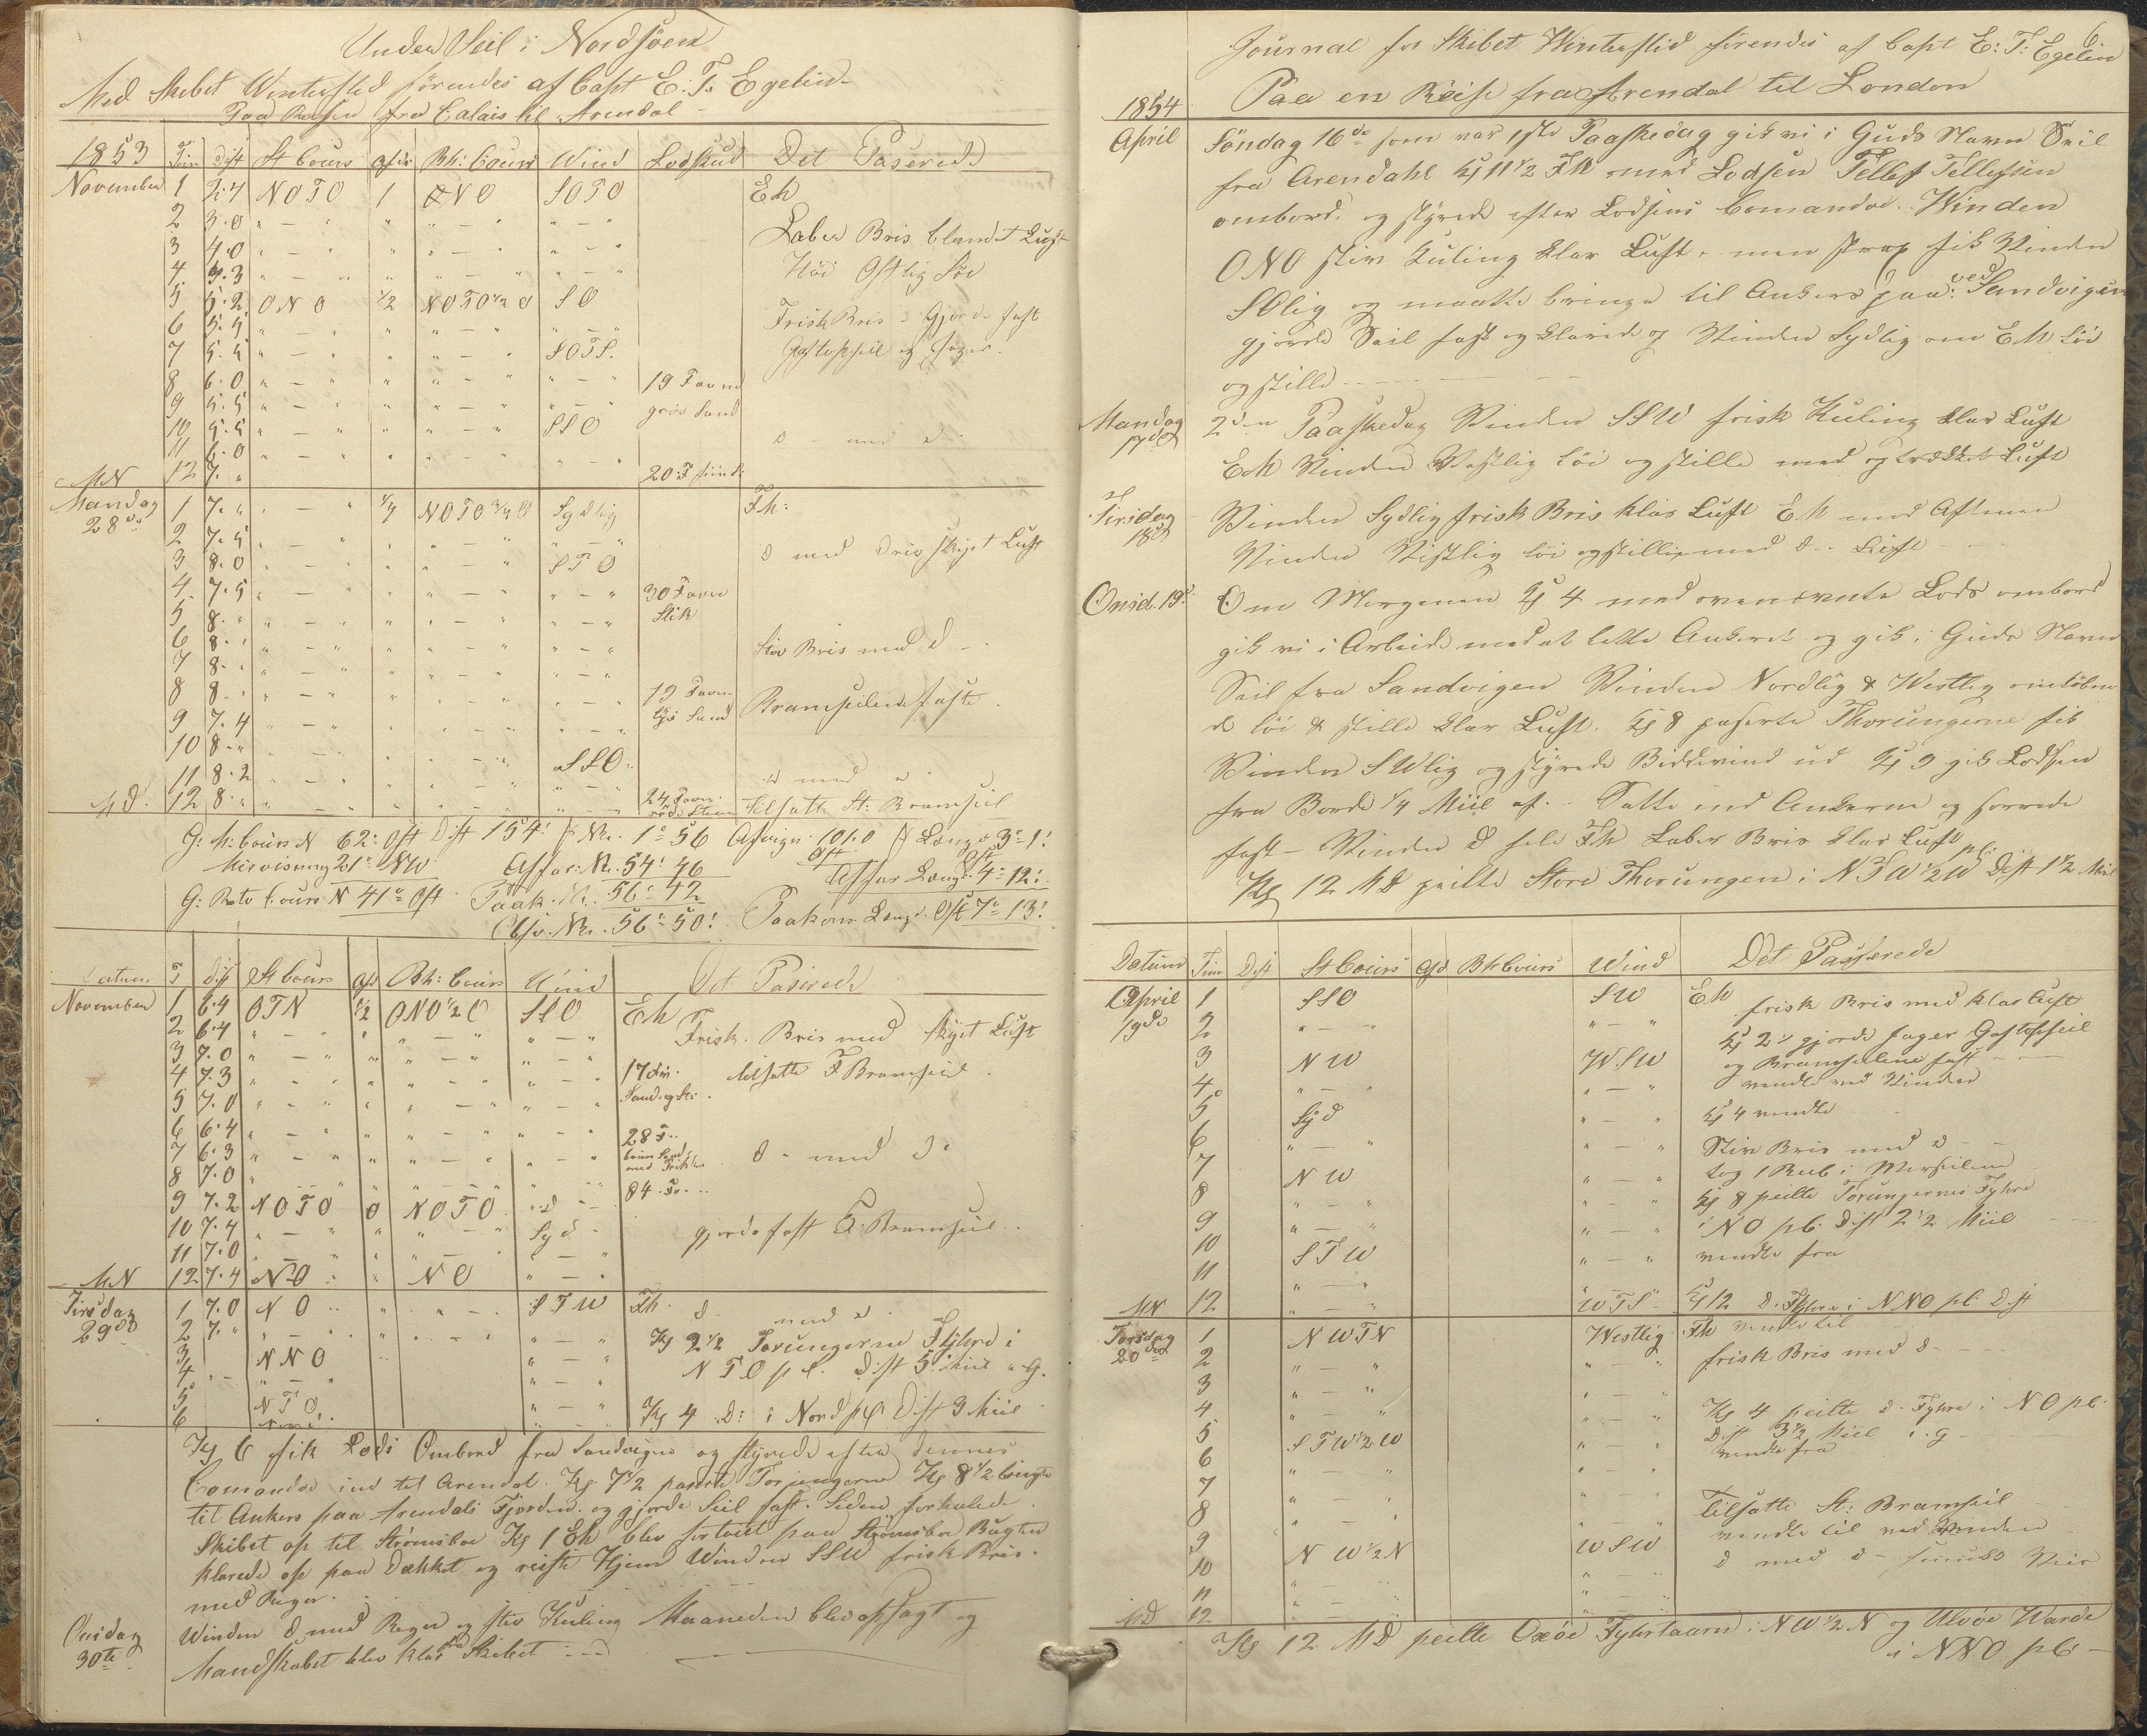 Under Seil i Nordsöen
Med Skibet Wintersted förendes af Capt E. T. Egelin
Paa Reisen fra Calais til Arendal
1853 Tim Dist St Cours Afdr Bh: Cours Wind Lodskud Det Paserede
November 1 NOTO 1 ONO SOTO Eh
2 3.0 " — " " " — " " — "
Laber Bris blandet Luft
3 4.0 " — " " " — " " — "
4 4.3 " — " " " — " " — "
Höi Ostlig Söe
5 5.2 ONO 1/2 NOTO 1/2 O SO
6 5.5 " — " " " — " " — "
Frisk Bris - Gjorde fast
7 5.5 " — " " " — " SOTS.
og Jager.
8 6.0 " — " " " — " " — " 19 Favne
9 5.5 " — " " " — " " — " grov Sand
10 5.5 " — " " " — " SSO
d - med d -
11 6.0 " — " " " — " " — "
MN 12 7. " 20 F
Mandag 28de 1 7. " " — " NOTO 3/4 O Sydlig Fh:
2 7.5 " — " " " — " " — "
d med Luft
3 8.0 " — " " " — " STO
4 7.5 " — " " " — " " — " 30 Favn
5 8. " " — " " " — " " — " Slik
6 8. " " — " " " — " " — "
Stiv Bris med d -
7 8. " " — " " " — " " — "
8 8. " " — " " " — " " — " 19 Favn
Sand Bramseilene faste
9 7.4 " — " " " — " " — "
10 8. " " — " " " — " SSO
11 8.2 " — " " " — " " — "
d med d
MD. 12 8. " " — " " " — " " — " 24 Favn
Tilsatte St: Bramseil
G: M: Cours N 62° Ost Dist 154' Nr. 1° 56 Afvign. 101.0 Ost Længde 3° 1'
Misvisning 21° NW Affar: Nr. 54° 46 Affar Længd. Ost 4° 12'
G: Retv Cours N 41° Ost Paak. Nr. 56° 42
Obsv. Nr. 56° 50' Paakom Længd. Ost 7° 13'
Datum T Dist St Cours Afd Bh: Cours Wind Det Paserede
November 1 6.4 OTN 1/2 ONO 1/2 O SSO Eh
2 6.4 " — " " " — " " — "
Frisk Bris med skyet Luft
3 7.0 " — " " " — " " — "
4 7.3 " — " " " — " " — " 17
tilsatte F Bramseil
5 7.0 " — " " " — " " — "
6 6.4 " — " " " — " " — " 28 F.
7 6.3 " — " " " — " " — "
d - med d.
8 7.0 " — " " " — " " — "
84 F.
9 7.2 NOTO 0 NOTO " d "
10 7.4 " — " " " — " Syd
gjorde fast Bramseil
11 7.0 " — " " " — " " — "
MN 12 7.4 NO " NO " — "
Tirsdag 29de 1 7.0 NO " " — " STW Fh. d - med d
2 7. " " — " " " — " " — " Kl 2 1/2 Torungerne Fyhre i
3 NNO " — " NTO pl. Dist 5 Miil "G.
4 " — " " — "
5 NTO " — " Kl 4 D: i Nord pl Dist 3 Miil
6 Nord
Kl 6 fik Lods Ombord fra Sandvigen og styrede efter dennes
Comando ind til Arendal. Kl 7 1/2 paserte Torjungerne Kl 8 1/2 bragte
til Ankers paa Arendals Fjorden. og gjorde Seil fast. Siden forhalede
Skibet op til Strömsboe Kl 1 Eh blev fortöiet paa Strömsboe Bugten
klarede op paa Dækket og reiste Hjem Winden SSW frisk Bris.
med Regn.
Onsdag 30te Winden d med Regn og stiv Kuling Maaneden blev opsagt og
Mandskabet blev klar fra Skibet
6
Journal for Skibet Wintersted förendes af Capt E: T: Egelin
1854 Paa en Reise fra Arendal til London
April Söndag 16de som var 1ste Paaskedag gik vi i Guds Navn Seil
fra Arendahl Kl 11 1/2 Fh med Lodsen Tellef Tellefsen
ombord. og styrede efter Lodsens Comando. Winden
ONO stiv Kuling klar Luft. men strax fik Vinden
SOlig og maatte bringe til Ankers paa: ved Sandvigen
gjorde Seil fast og klarede op Vinden Sydlig om Eh löi
og stille
Mandag 17de 2den Paaskedag Vinden SSW frisk Kuling klar Luft
Eh Vinden Vestlig löi og stille med optrækket Luft
Tirsdag 18de Vinden Sydlig frisk Bris klar Luft Eh mod Aftenen
Vinden Vestlig löi og stille med d - Luft
Onsd. 19d. Om Morgenen Kl 4 med ovennævnte Lods ombord
gik vi i Arbeide med at lette Ankeret og gik i Guds Navn
Seil fra Sandvigen Vinden Nordlig & Westlig omlöben
de löi & stille klar Luft. Kl 8 paserte Thorungerne fik
Vinden SWlig og styrede Biddevind ud Kl 9 gik Lodsen
fra Borde 1/4 Miil af. Satte ind Ankerne og sorrede
fast - Vinden d hele Fh Laber Bris klar Luft
Kl 12 MD peilte Store Thorungen i NTW 1/2 W pl. Dist 1 1/2 Miil
Datum Tim Dist St Cours Afd Bh Cours Wind Det Passerede
April 19de 1 SSO SW Eh frisk Bris med klar Luft
2 " — " " — " Kl 2 gjorde Jager Gaftopseil
3 NW WSW og Bramseilene fast
4 " — " " — " vendte ved Vinden
5 Syd " — " Kl 4 vendte
6 " — " " — " Stiv Bris med d -
7 NW " — " tog 1 Reeb i Merseilene
8 " — " " — " Kl 8 peilte Torungernes Fyhre
9 " — " " — " i NO pl. Dist 2 1/2 Miil
10 STW " — " vendte fra
11 " — "
MN 12 " — " WTS Kl 12 d. Fyhre i NNO pl. Dist
Torsdag 20de 1 NWTN Westlig Fh vendte til
2 " — " " — " frisk Bris med d -
3 " — " " — "
4 " — " " — " Kl 4 peilte d. Fyhre i NO pl.
5 STW 1/2 W " — " Dist 3 1/2 Miil i. G
6 " — " " — " vendte fra
7 " — " " — "
8 " — " " — " Tilsatte St: Bramseil
9 NW 1/2 N WSW vendte til ved Vinden
10 " — " " — " d med d - smukt Veir
11 " — " " — "
MD 12 " — " " — "
Kl 12 MD peilte Oxöe Fyhrtaarn i NW 1/2 N og Ulvöe Warde
i NNO pl.